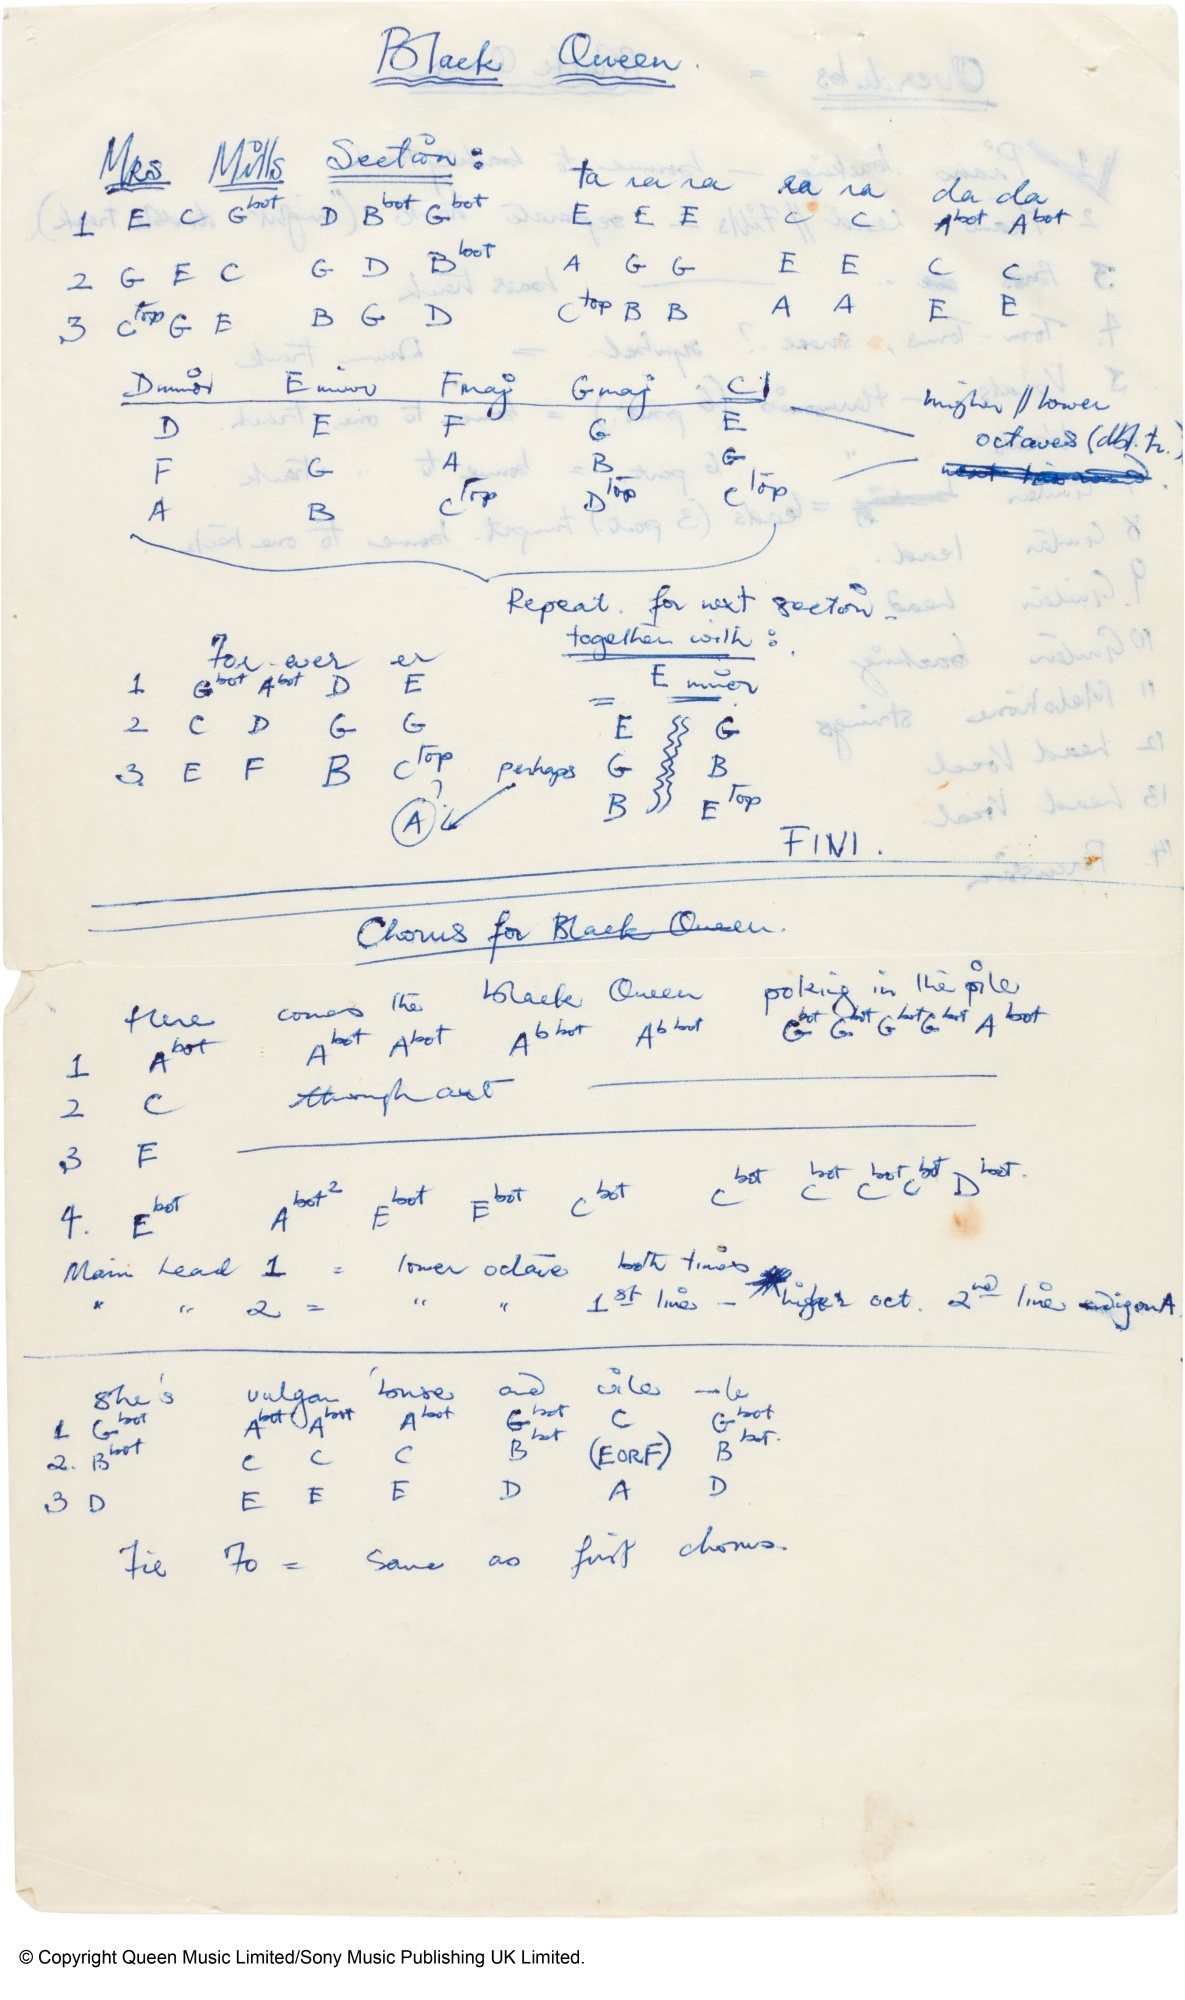 Black Queen.
Mrs Mills Section:
ta ra ra ra ra da da
1 E C G bot D B bot G bot E E E C C A bot A bot
2 G E C G D B bot A G G E E C C
3 C top G E B G D C top B B A A E E
Dminor Eminor Fmaj Gmaj C
D E F G E
F G A B G
A B C Top D Top C Top
higher // lower
octaves (dbl. tr.)
Repeat. for next section
together with:
For-ever er
1 G bot A bot D E
2 C D G G
3. E F B C Top
?
A
perhaps
E minor
= E G
G B
B E Top
FINI.
Chorus for Black Queen.
Here comes the black Queen poking in the pile
1 A bot A bot A bot Ab bot Ab bot G bot G bot G bot G bot A bot
2 C through out
3 E
4. E bot A bot 2 E bot E bot C bot C bot C bot C bot C bot D bot.
Main Lead 1 = lower octave both times
" " 2 = " " 1st line - higher oct. 2nd line
She's vulgar 'buse and vile -le
1 G bot A bot A bot A bot G bot C G bot
2. B bot C C C B bot (E OR F) B bot.
3 D E E E D A D
Fie Fo = same as first chorus.
© Copyright Queen Music Limited/Sony Music Publishing UK Limited.